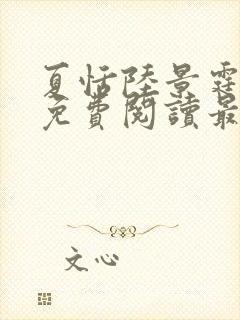 夏恬陸景霆
免費閱讀最
文心